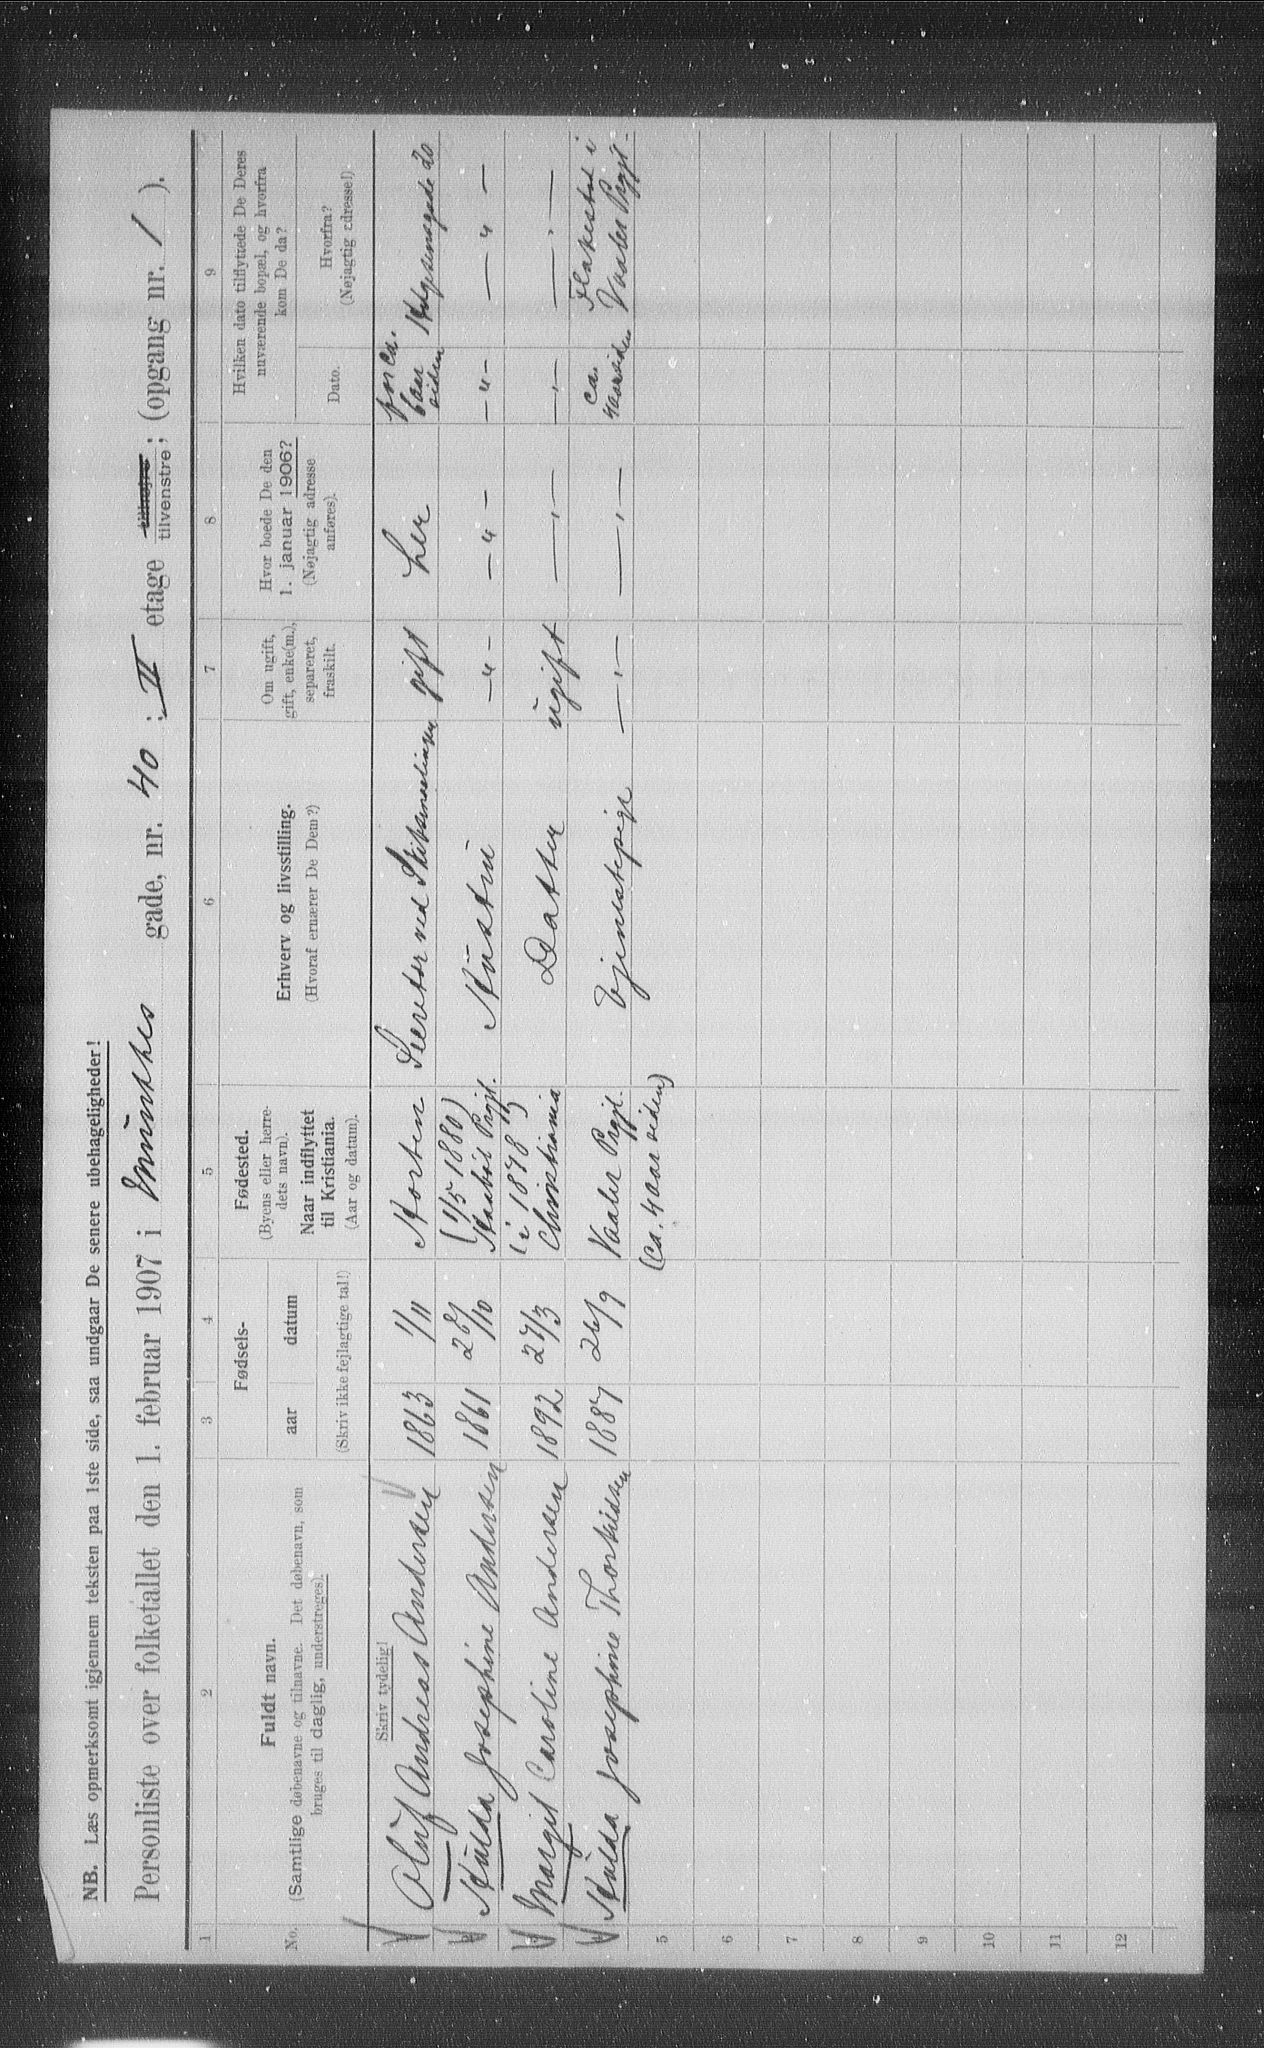 NB. Læs opmerksomt igjennem teksten paa 1ste side, saa undgaar De senere ubehageligheder!
Personliste over folketallet den 1. februar 1907 i Munkes gade, nr. 40 ; II etage tilhøjre tilvenstre; (opgang nr. 1 ).
1 2 3 4 5 6 7 8 9
No.
Fuldt navn.
(Samtlige døbenavne og tilnavne. Det døbenavn, som
bruges til daglig, understreges).
Fødsels-
aar
datum
(Skriv ikke fejlagtige tal!)
Fødested.
(Byens eller herre-
dets navn).
Naar indflyttet
til Kristiania.
(Aar og datum).
Erhverv og livsstilling.
(Hvoraf ernærer De Dem?)
Om ugift,
gift, enke(m.),
separeret,
fraskilt.
Hvor boede De den
1. januar 1906?
(Nøjagtig adresse
anføres).
Hvilken dato tilflyttede De Deres
nuværende bopæl, og hvorfra
kom De da?
Dato.
Hvorfra?
(Nøjagtig adresse!)
Skriv tydelig!
Oluf Andreas Andersen 1863 1/11 Horten Secretær ved gift her for ca. 6 aar siden Helgesensgade 20
(1/5 1880)
Hulda Josephine Andersen 1861 28/10 Haabøl Prgjl. Hustru -"- -"- -"- -"-
(i 1878)
Margit Caroline Andersen 1892 27/3 Christiania Datter ugift -"- -"- -"-
Hulda Josephine Thorkildsen 1887 26/9 Vaaler Prgjl. Tjenestepige -"- -"- ca. 4 aar siden i Vaaler Prgjl.
(ca. 4 aar siden)
5
6
7
8
9
10
11
12